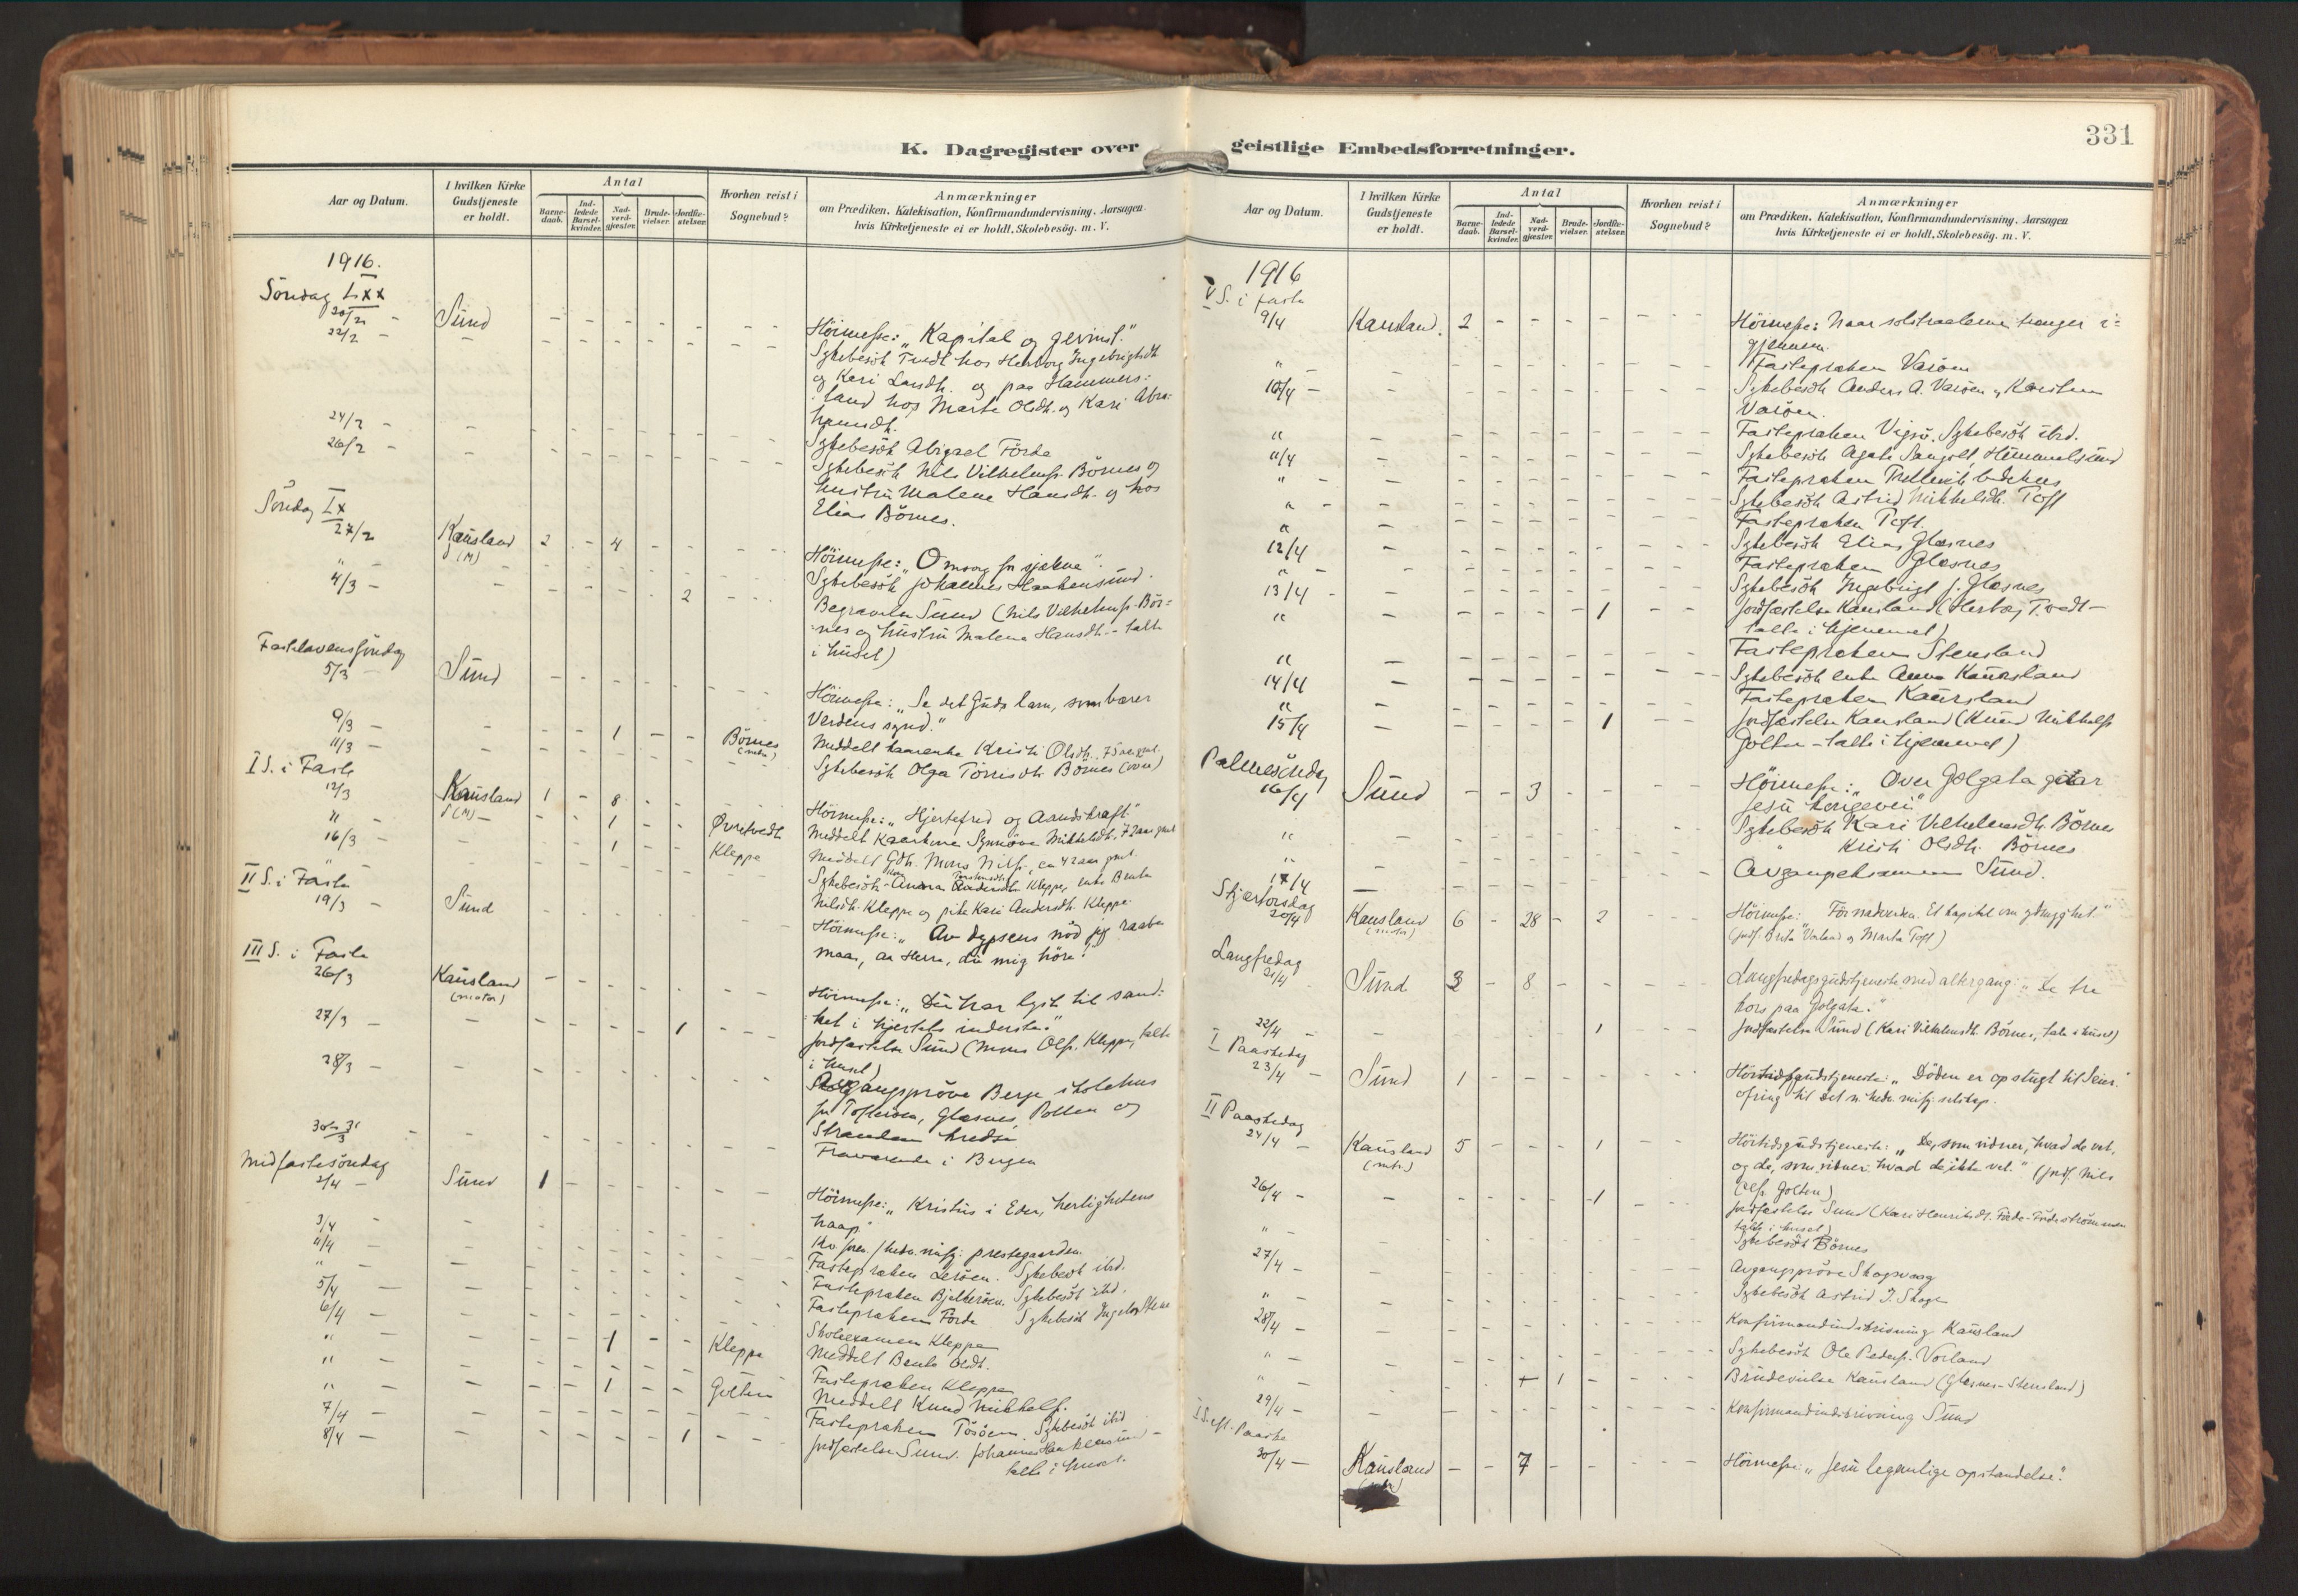 K. Dagregister over
Aar og Datum.
I hvilken Kirke Gudstjeneste er holdt.
Antal
Barne-daab.
Ind-ledede Barsel-kvinder.
Nad-verd-gjester.
Brude-vielser.
Jordfæ-stelser.
Hvorhen reist i Sognebud?
Anmærkninger
om Prædiken, Katekisation, Konfirmandundervisning, Aarsagen
hvis Kirketjeneste ei er holdt, Skolebesög. m. V.
1916.
Söndag Lxx
20/2 - Sund - - - - - - Höimesse: "Kapital og gevinst."
22/2 - - - - - - - Sykebesök Tvedt hos Herborg Ingebrigtsdt.
og Kari Larsdt. og paa Hammers:
land hos Marta Olsdt. og Kari Abra:
hamsdt.
24/2 - - - - - - - Sykebesök Abigael Förde
26/2 - - - - - - - Sykebesök Nils Vilhelmss. Börnes og
hustru Malene Hansdt. og hos
Elias Börnes.
Söndag Lx
27/2 Kausland (M) 2 - 4 - - - Höimesse: "Omsorg for sjælene".
" Sykebesök Johannes Haakensund.
4/3 - - - - - - 2 - Begravelse Sund (Nils Vilhelmss. Bör=
nes og hustru Malene Hansdt. - talt
i huset)
Fastelavenssöndag
5/3 - Sund - - - - - - Höimesse: "Se det Guds lam, som bærer
Verdens synd."
9/3 - - - - 1 - - Börnes (motor) Meddelt kaarenke Kristi Olsdt. 75 aar gml.
11/3 - - - - - - - Sykebesök Olga Törrisdt. Börnes (over)
I S. i Faste
12/3 Kausland (M) 1 - 8 - - - Höimesse: "Hjertefred og Aandskraft."
" - - - 1 - - Övretvedt Meddelt kaarkone Synnöve Mikkelsdt. 72 aar gml.
16/3 - - - - 1 - - Kleppe Meddelt Gdb. Mons Nilss. ca 42 aar gml.
Sykebesök Anna Kleppe, enke Brita
Nilsdt. Kleppe og pike Kari Andersdt. Kleppe.
II S. i Faste
19/3 - Sund - - - - - - Höimesse: "Av dypsens nöd jeg raabe
maa, aa Herre, du mig höre!"
III S. i Faste
26/3 Kausland (motor) - - - - - - Höimesse: "Du har lyst til sand:
het i hjertets inderste."
27/3 - - - - - - 1 - Jordfæstelse Sund (Mons Olss. Kleppe, talt
i huset)
28/3 - - - - - - - Avgangspröve Berge skolehus
for Toftevaag, Glesnes, Polten og
Strandens kredse
30 og 31/3 - - - - - - - Fraværende i Bergen
Midfastesöndag
2/4 - Sund 1 - - - - - Höimesse: "Kristus i Eder, herlighetens
haap."
3/4 - - - - - - - Kv. foren. f. hedn. miss. prestegaarden.
4/4 - - - - - - - Fastepræken Leröen. Sykebesök ibid.
" - - - - - - - Fastepræken Bjelkeröen. Sykebesök ibid.
5/4 - - - - - - - Fastepræken Förde Sykebesök
6/4 - - - - - - - Skoleexamen Kleppe
" - - - 1 - - Kleppe Meddelt Brita Olsdt.
" - - - - - - - Fastepræken Kleppe
" - - - 1 - - Golten Meddelt Knud Mikkels.
7/4 - - - - - - - Fastepræken Tösöen. Sykebesök ibid
8/4 - - - - - 1 - Jordfæstelse Sund. Johannes Haakensund -
talt i huset.
geistlige Embedsforretninger.
331
Aar og Datum.
I hvilken Kirke Gudstjeneste er holdt.
Antal
Barne-daab.
Ind-ledede Barsel-kvinder.
Nad-verd-gjester.
Brude-vielser.
Jordfæ-stelser.
Hvorhen reist i Sognebud?
Anmærkninger
om Prædiken, Katekisation, Konfirmandundervisning, Aarsagen
hvis Kirketjeneste ei er holdt, Skolebesög. m. V.
1916
V S. i faste
9/4 Kausland. 2 - - - - - Höimesse: Naar solstraalerne trænger i=
gjennem.
" - - - - - - - Fastepræken Varöen
10/4 - - - - - - - Sykebesök Anders A. Varöen, Karsten
Varöen.
" - - - - - - - Fastepræken Vigsö. Sykebesök ibid.
11/4 - - - - - - - Sykebesök Agate Sangolt, Hummelsund
" - - - - - - - Fastepræken Trellevik bedehus
" - - - - - - - Sykebesök Astrid Mikkelsdt. Toft
" - - - - - - - Fastepræken Toft.
12/4 - - - - - - - Sykebesök Elias Glesnes
" - - - - - - - Fastepræken Glesnes
13/4 - - - - - - - Sykebesök Ingebrigt J. Glesnes
" - - - - - 1 - Jordfæstelse Kausland (Herborg Tvedt -
talte i hjemmet)
" - - - - - - - Fastepræken Stensland
14/4 - - - - - - - Sykebesök enke Anna Kausland
" - - - - - - - Fastepræken Kausland
15/4 - - - - - 1 - Jordfæstelse Kausland (Knud Mikkelss
Golten - talte i hjemmet)
Palmesöndag
16/4 Sund - - 3 - - - Höimesse: "Over Golgata gaar
Jesu kongevei"
" - - - - - - - Sykebesök Kari Vilhelmsdt. Börnes
" " Kristi Olsdt. Börnes
17/4 - - - - - - - Avgangseksamen Sund.
Skjærtorsdag
20/4 Kausland (motor) 6 - 28 - 2 - Höimesse: "Fornedrelse. Et kapitel om ydmyghet."
(jordf. Brita Vorland og Marta Toft)
Langfredag
21/4 Sund 3 - 8 - - - Langfredagsgudstjeneste med altergang: "De tre
kors paa Golgata."
22/4 - - - - - 1 - Jordfæstelse Sund (Kari Vilhelmsdt. Börnes, tale i huset)
I Paaskedag
23/4 - Sund 1 - - - - - Höitidsgudstjeneste: "Döden er opslugt til Seier."
Ofring til Det n. hedn. miss. selskap.
II Paaskedag
24/4 - Kausland (motor) 5 - - - 1 - Höitidsgudstjeneste: "De, som vidner, hvad de vet,
og de, som vidner hvad de ikke vet." (jordf. Nils
Olss. Golten)
26/4 - - - - - - 1 - Jordfæstelse Sund (Kari Henriksdt. Förde-Fördeströmmen
talte i huset)
" - - - - - - Sykebesök Börnes
27/4 - - - - - - - Avgangspröve Skogsvaag
" - - - - - - - Sykebesök Astrid J. Skoge
28/4 - - - - - - - Konfirmandindskrivning Kausland
" - - - - - - - Sykebesök Ole Pederss. Vorland
" - - - - 1 - - Brudevielse Kausland (Glesnes-Stensland)
29/4 - - - - - - - Konfirmandindskrivning Sund
I S. eft. Paaske
30/4 - Kausland (motor) - - 7 - - - Höimesse: "Jesu legemlige opstandelse."